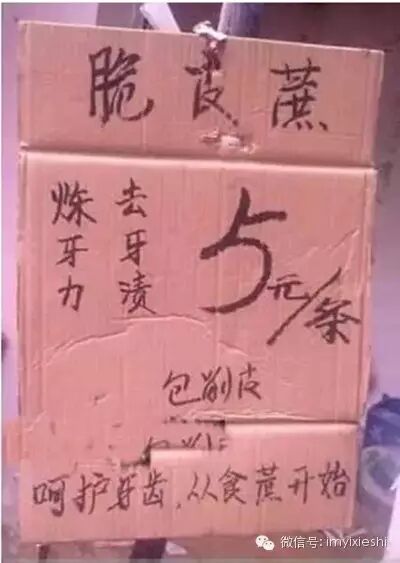 脆皮蔗
去牙渍
炼牙力
5元/条
包削皮
包削
呵护牙齿,从食蔗开始
微信号: imyixieshi